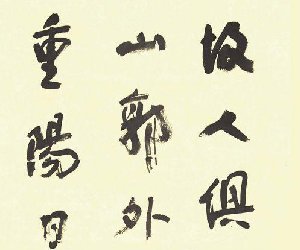 故人俱
山郭外
重陽日